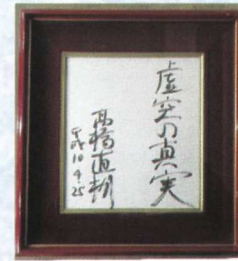 虚空の真実
高橋直樹
平成10.9.25